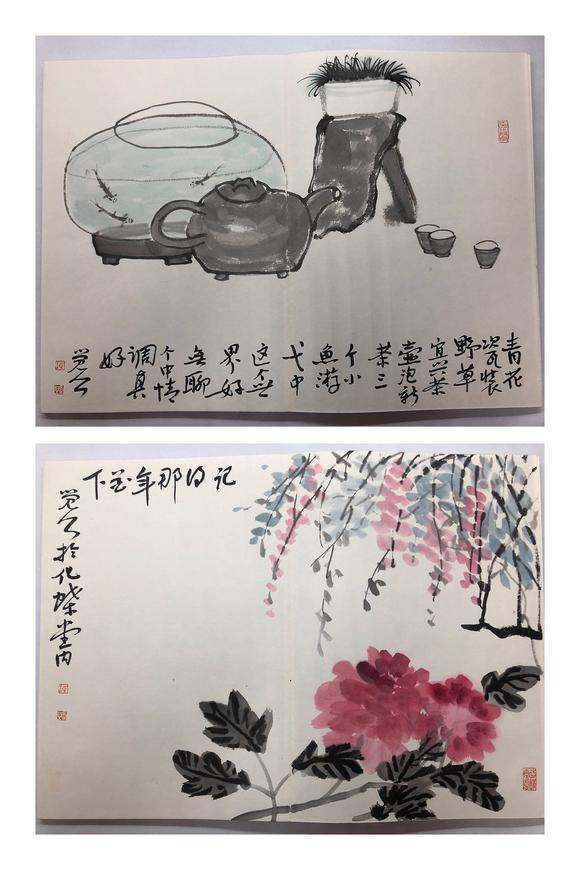 青花
瓷装
野草
宜兴茶
壶泡新
茶三
个小
鱼游
弋中
这个世
界好
无聊
个中情
调真
好
觉公
记得那年花下
觉公於化蝶堂内